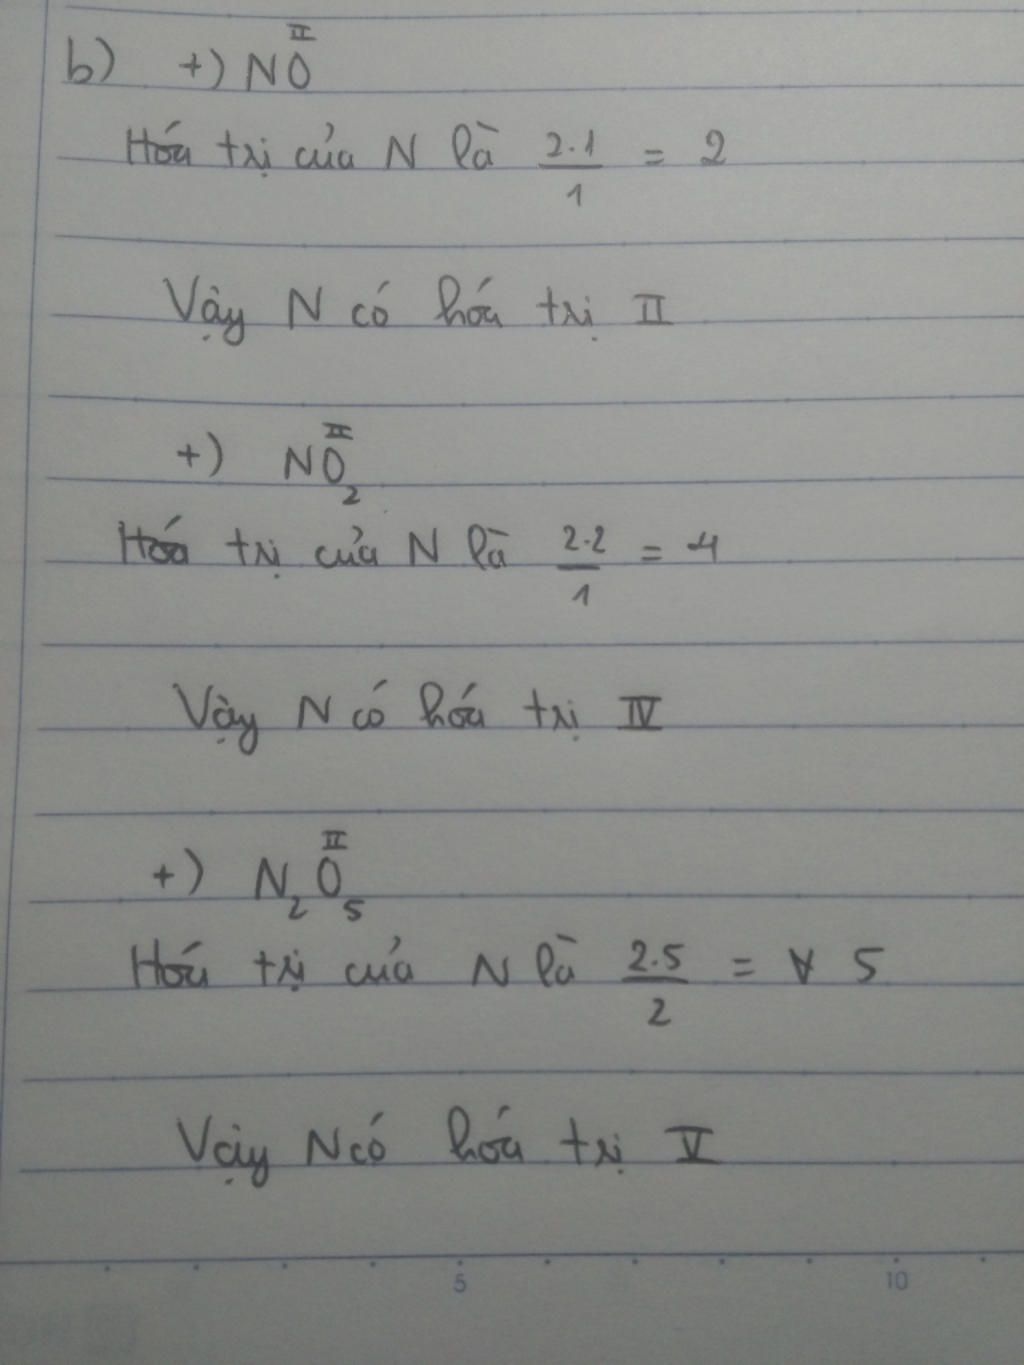 b) +) NO^II
Hóa trị của N là 2.1/1 = 2
Vậy N có hóa trị II
+) NO^II_2
Hóa trị của N là 2.2/1 = 4
Vậy N có hóa trị IV
+) N_2O^II_5
Hóa trị của N là 2.5/2 = 5
Vậy N có hóa trị V
5 10